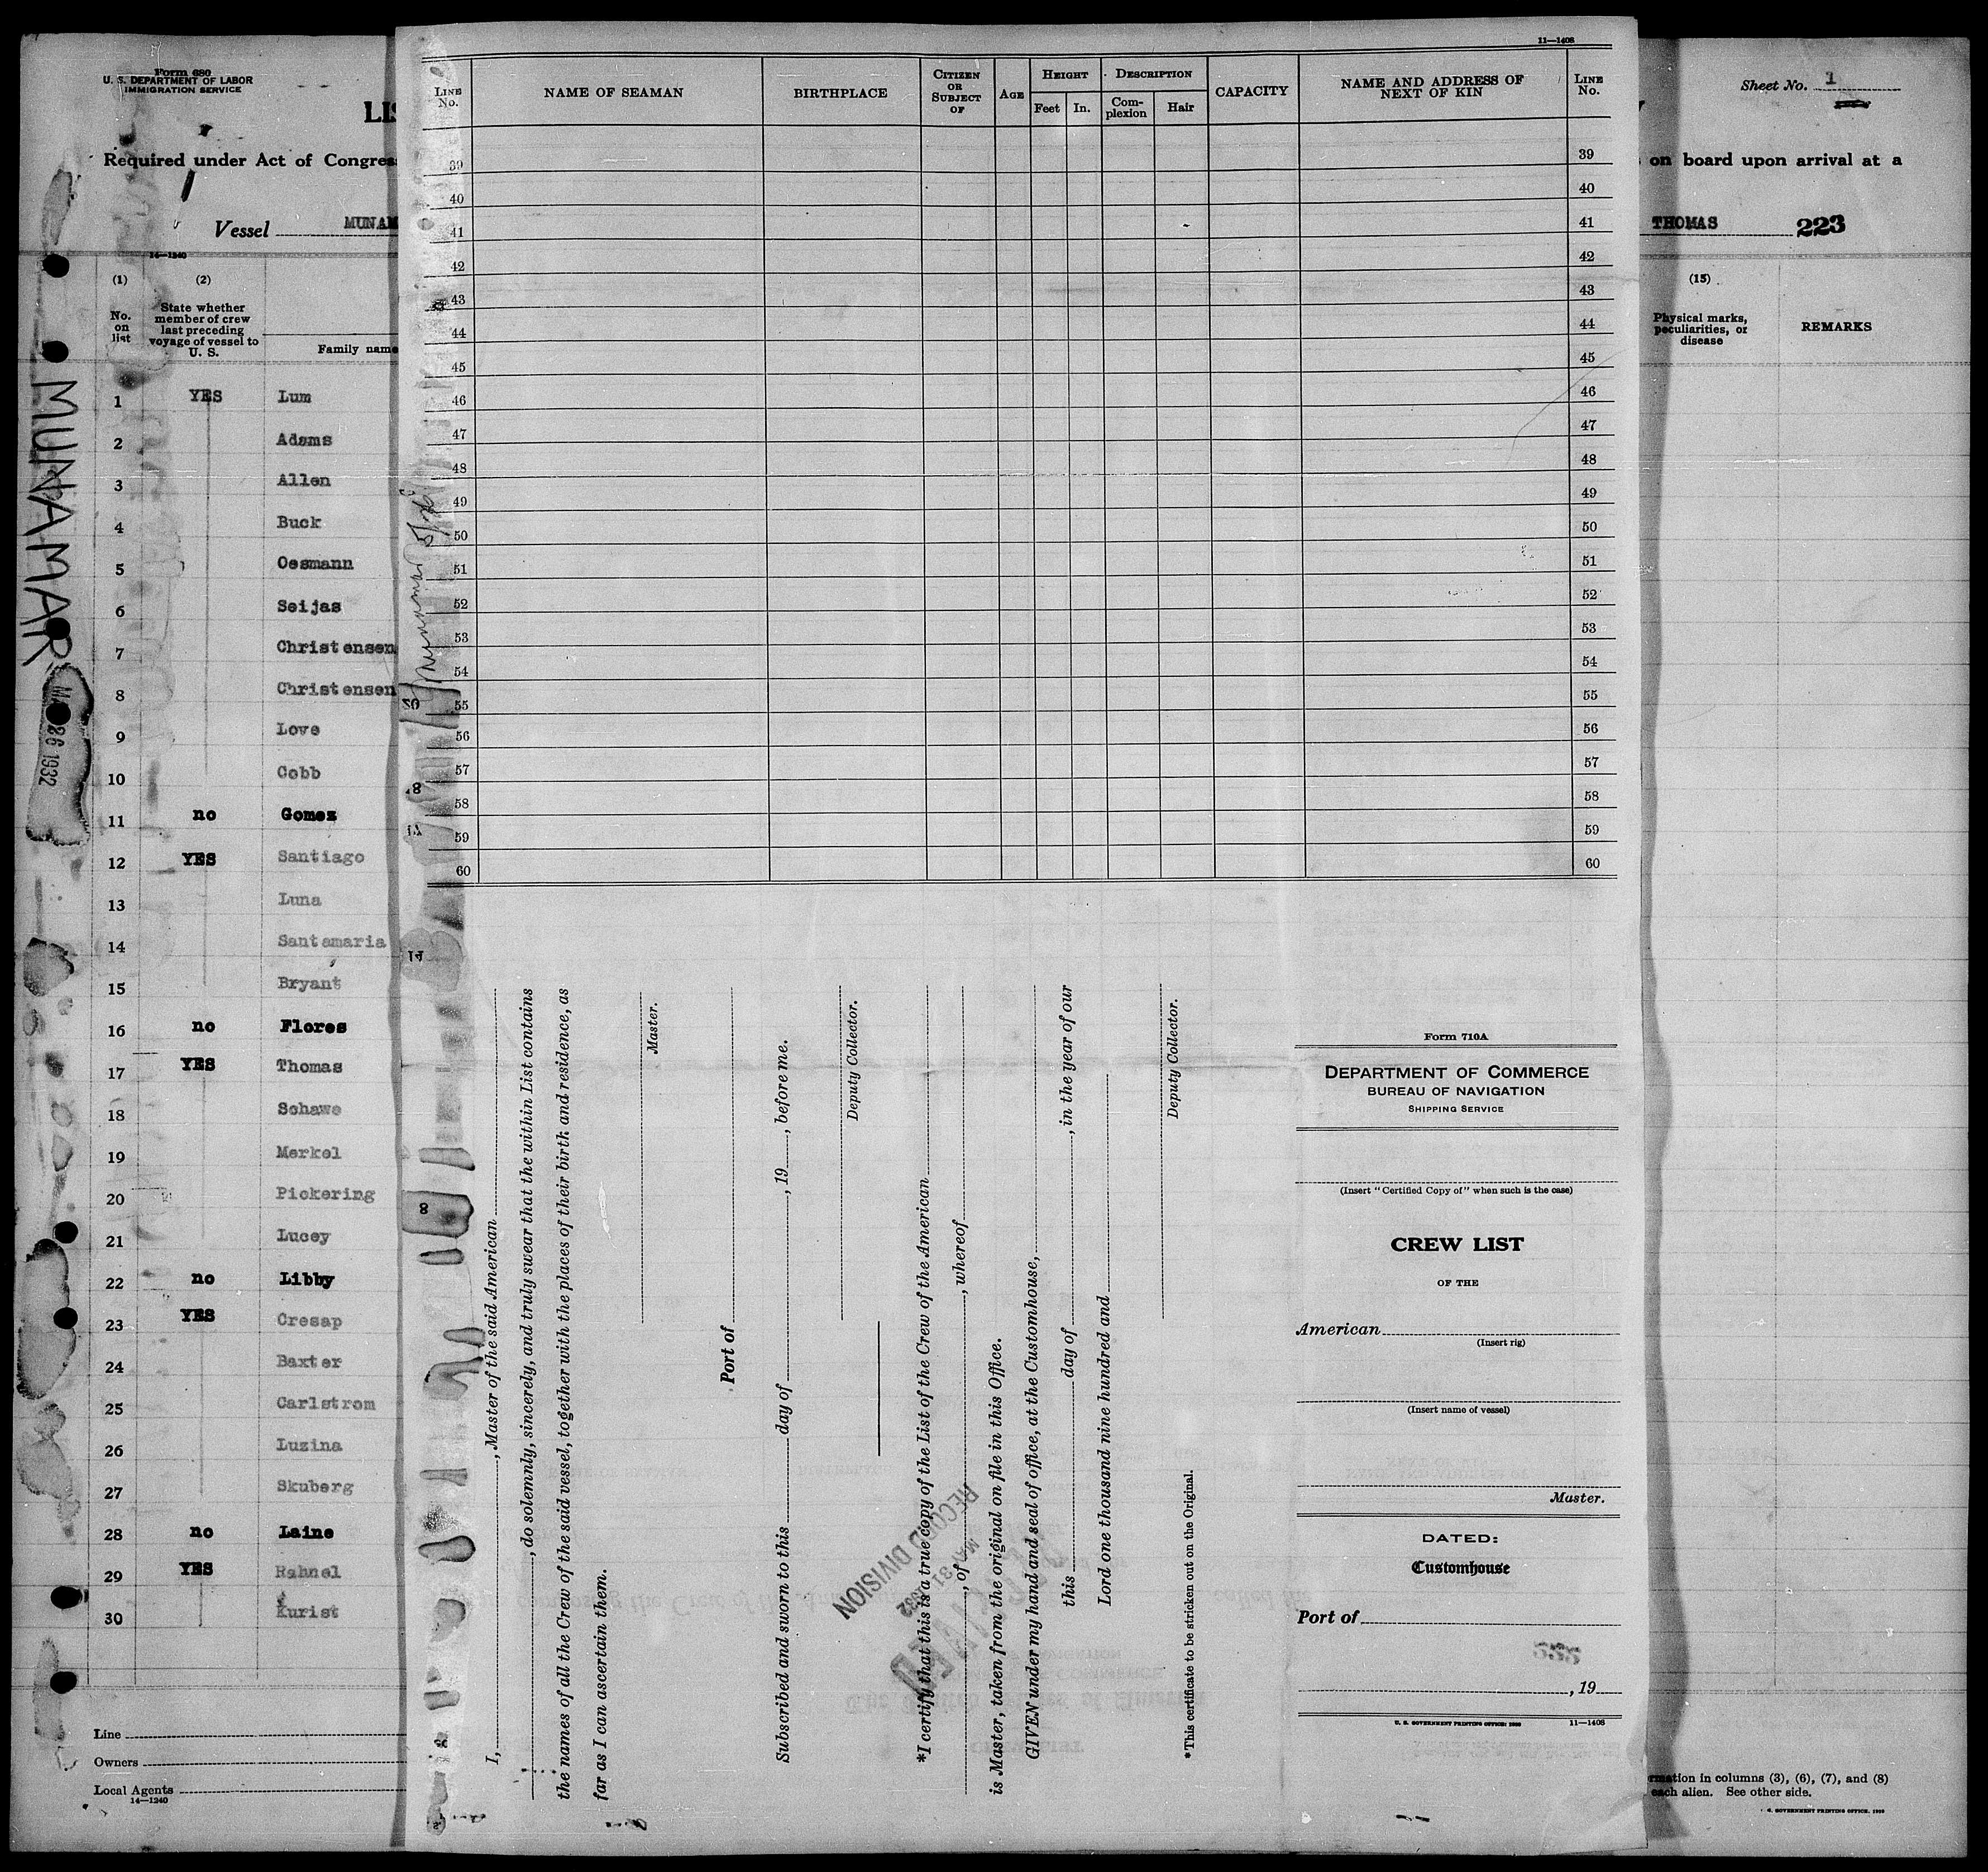 Form 680
U. S. DEPARTMENT OF LABOR
IMMIGRATION SERVICE
LIS
Required under Act of Congres
Vessel MUNAM
14—1240
(1)
No. on list
(2)
State whether member of crew last preceding voyage of vessel to U. S.
Family name
1 YES Lum
2 Adams
3 Allen
4 Buck
5 Oesmann
6 Seijas
7 Christensen
8 Christensen
9 Love
10 Cobb
11 no Gomez
12 YES Santiago
13 Luna
14 Santamaria
15 Bryant
16 no Flores
17 YES Thomas
18 Schawe
19 Merkel
20 Pickering
21 Lucey
22 no Libby
23 YES Cresap
24 Baxter
25 Carlstrom
26 Luzina
27 Skuberg
28 no Laine
29 YES Rahnel
30 Kurist
Line
Owners
Local Agents
14—1240
MUNAMAR
26 1932
11—1408
LINE No.
NAME OF SEAMAN
BIRTHPLACE
CITIZEN OR SUBJECT OF
AGE
HEIGHT
Feet In.
DESCRIPTION
Complexion Hair
CAPACITY
NAME AND ADDRESS OF NEXT OF KIN
LINE No.
39 39
40 40
41 41
42 42
43 43
44 44
45 45
46 46
47 47
48 48
49 49
50 50
51 51
52 52
53 53
54 54
55 55
56 56
57 57
58 58
59 59
60 60
I, , Master of the said American
, do solemnly, sincerely, and truly swear that the within List contains
the names of all the Crew of the said vessel, together with the places of their birth and residence, as
far as I can ascertain them.
Master.
Port of
Subscribed and sworn to this day of , 19 , before me.
Deputy Collector.
*I certify that this is a true copy of the List of the Crew of the American
, of , whereof
is Master, taken from the original on file in this Office.
GIVEN under my hand and seal of office, at the Customhouse,
this day of , in the year of our
Lord one thousand nine hundred and
Deputy Collector.
*This certificate to be stricken out on the Original.
RECORD DIVISION
MAY 31 1932
Form 710A
DEPARTMENT OF COMMERCE
BUREAU OF NAVIGATION
SHIPPING SERVICE
(Insert "Certified Copy of" when such is the case)
CREW LIST
OF THE
American
(Insert rig)
(Insert name of vessel)
Master.
DATED:
Customhouse
Port of
, 19
U. S. GOVERNMENT PRINTING OFFICE: 1930 11—1408
Sheet No. 1
on board upon arrival at a
THOMAS 223
(15)
Physical marks, peculiarities, or disease
REMARKS
rmation in columns (3), (6), (7), and (8)
each alien. See other side.
GOVERNMENT PRINTING OFFICE, 1930